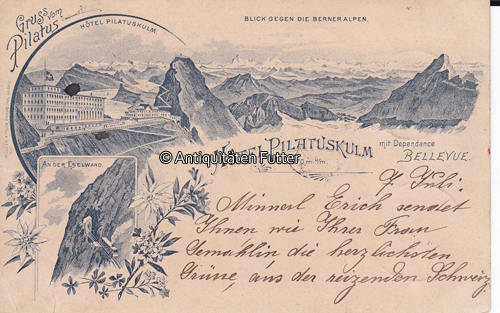 Gruss vom
Pilatus
HÔTEL PILATUSKULM.
BLICK GEGEN DIE BERNER ALPEN.
HOTEL PILATUSKULM
mit Dependance
BELLEVUE.
© Antiquitäten Futter
AN DER ESELWAND.
7 Juli.
Minnerl Erich sendet
Ihnen wie Ihrer Frau
Gemahlin die herzlichsten
Grüße, aus der reizenden Schweiz